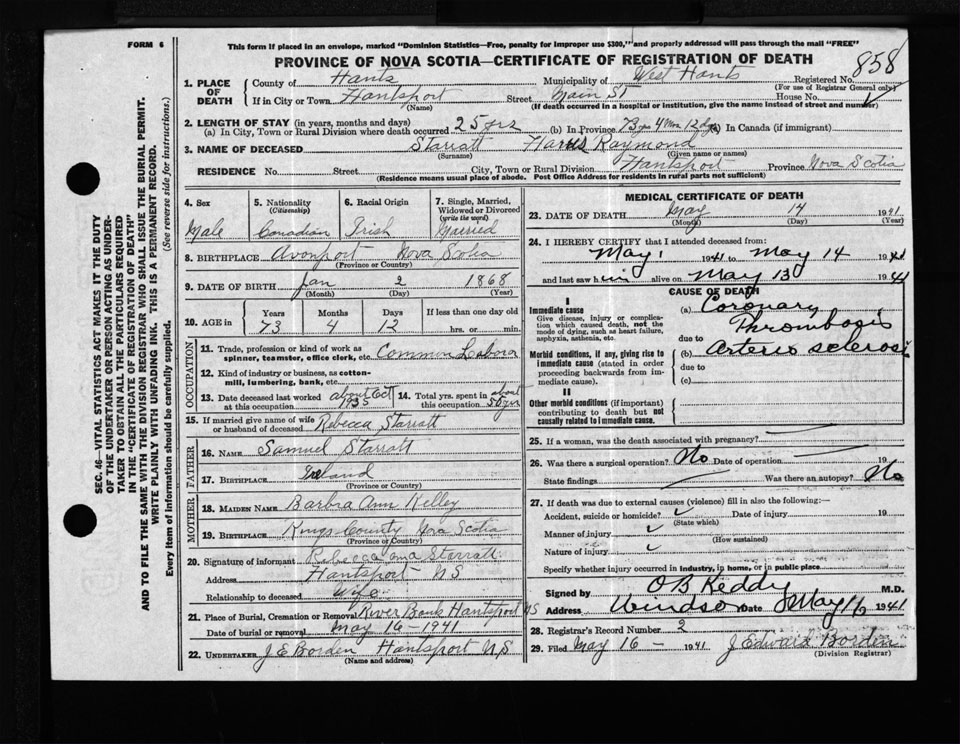 FORM 6
This form if placed in an envelope, marked "Dominion Statistics—Free, penalty for improper use $300," and properly addressed will pass through the mail "FREE"
PROVINCE OF NOVA SCOTIA—CERTIFICATE OF REGISTRATION OF DEATH
858
1. PLACE OF DEATH
County of Hants Municipality of West Hants Registered No.
(For use of Registrar General only)
If in City or Town Hantsport Street Main St House No.
(Name) (If death occurred in a hospital or institution, give the name instead of street and number)
2. LENGTH OF STAY (in years, months and days)
(a) In City, Town or Rural Division where death occurred 25 yrs (b) In Province 73 yrs 4 Mon 12 dys (c) In Canada (if immigrant)
3. NAME OF DECEASED Starratt Harris Raymond
(Surname) (Given name or names)
RESIDENCE No. Street City, Town or Rural Division Hantsport Province Nova Scotia
(Residence means usual place of abode. Post Office Address for residents in rural parts not sufficient)
SEC. 46—VITAL STATISTICS ACT MAKES IT THE DUTY
OF THE UNDERTAKER OR PERSON ACTING AS UNDER-
TAKER TO OBTAIN ALL THE PARTICULARS REQUIRED
IN THE "CERTIFICATE OF REGISTRATION OF DEATH"
AND TO FILE THE SAME WITH THE DIVISION REGISTRAR WHO SHALL ISSUE THE BURIAL PERMIT.
WRITE PLAINLY WITH UNFADING INK. THIS IS A PERMANENT RECORD.
Every item of Information should be carefully supplied. (See reverse side for instructions.)
4. Sex 5. Nationality (Citizenship) 6. Racial Origin 7. Single, Married, Widowed or Divorced (write the word)
Male Canadian Irish Married
8. BIRTHPLACE Avonport Nova Scotia
(Province or Country)
9. DATE OF BIRTH Jan 2 1868
(Month) (Day) (Year)
10. AGE in Years Months Days If less than one day old
73 4 12 hrs. or min.
OCCUPATION
11. Trade, profession or kind of work as spinner, teamster, office clerk, etc. Common Laborer
12. Kind of industry or business, as cotton-mill, lumbering, bank, etc.
13. Date deceased last worked at this occupation about Oct 1935 14. Total yrs. spent in this occupation about 50 yrs
15. If married give name of wife or husband of deceased Rebecca Starratt
FATHER
16. NAME Samuel Starratt
17. BIRTHPLACE Ireland
(Province or Country)
MOTHER
18. MAIDEN NAME Barbra Ann Kelley
19. BIRTHPLACE Kings County Nova Scotia
(Province or Country)
20. Signature of informant Rebecca Starratt
Address Hantsport N S
Relationship to deceased Wife
21. Place of Burial, Cremation or Removal River Bank Hantsport NS
Date of burial or removal May 16 - 1941
22. UNDERTAKER J E Borden Hantsport N S
(Name and address)
MEDICAL CERTIFICATE OF DEATH
23. DATE OF DEATH May 14 1941
(Month) (Day) (Year)
24. I HEREBY CERTIFY that I attended deceased from:
May 1 1941 to May 14 1941
and last saw him alive on May 13 1941
CAUSE OF DEATH
I
Immediate cause
Give disease, injury or complication which caused death, not the mode of dying, such as heart failure, asphyxia, asthenia, etc.
(a) Coronary Thrombosis
due to
Morbid conditions, if any, giving rise to immediate cause (stated in order proceeding backwards from immediate cause).
(b) Arterio sclerosis
due to
(c)
II
Other morbid conditions (if important) contributing to death but not causally related to immediate cause.
25. If a woman, was the death associated with pregnancy?
26. Was there a surgical operation? No Date of operation 19
State findings Was there an autopsy? No
27. If death was due to external causes (violence) fill in also the following:—
Accident, suicide or homicide? Date of injury 19
(State which)
Manner of injury
(How sustained)
Nature of injury
Specify whether injury occurred in Industry, in home, or in public place
Signed by O B Keddy M.D.
Address Windsor Date May 16 1941
28. Registrar's Record Number 2
29. Filed May 16 - 1941 J Edward Borden
(Division Registrar)